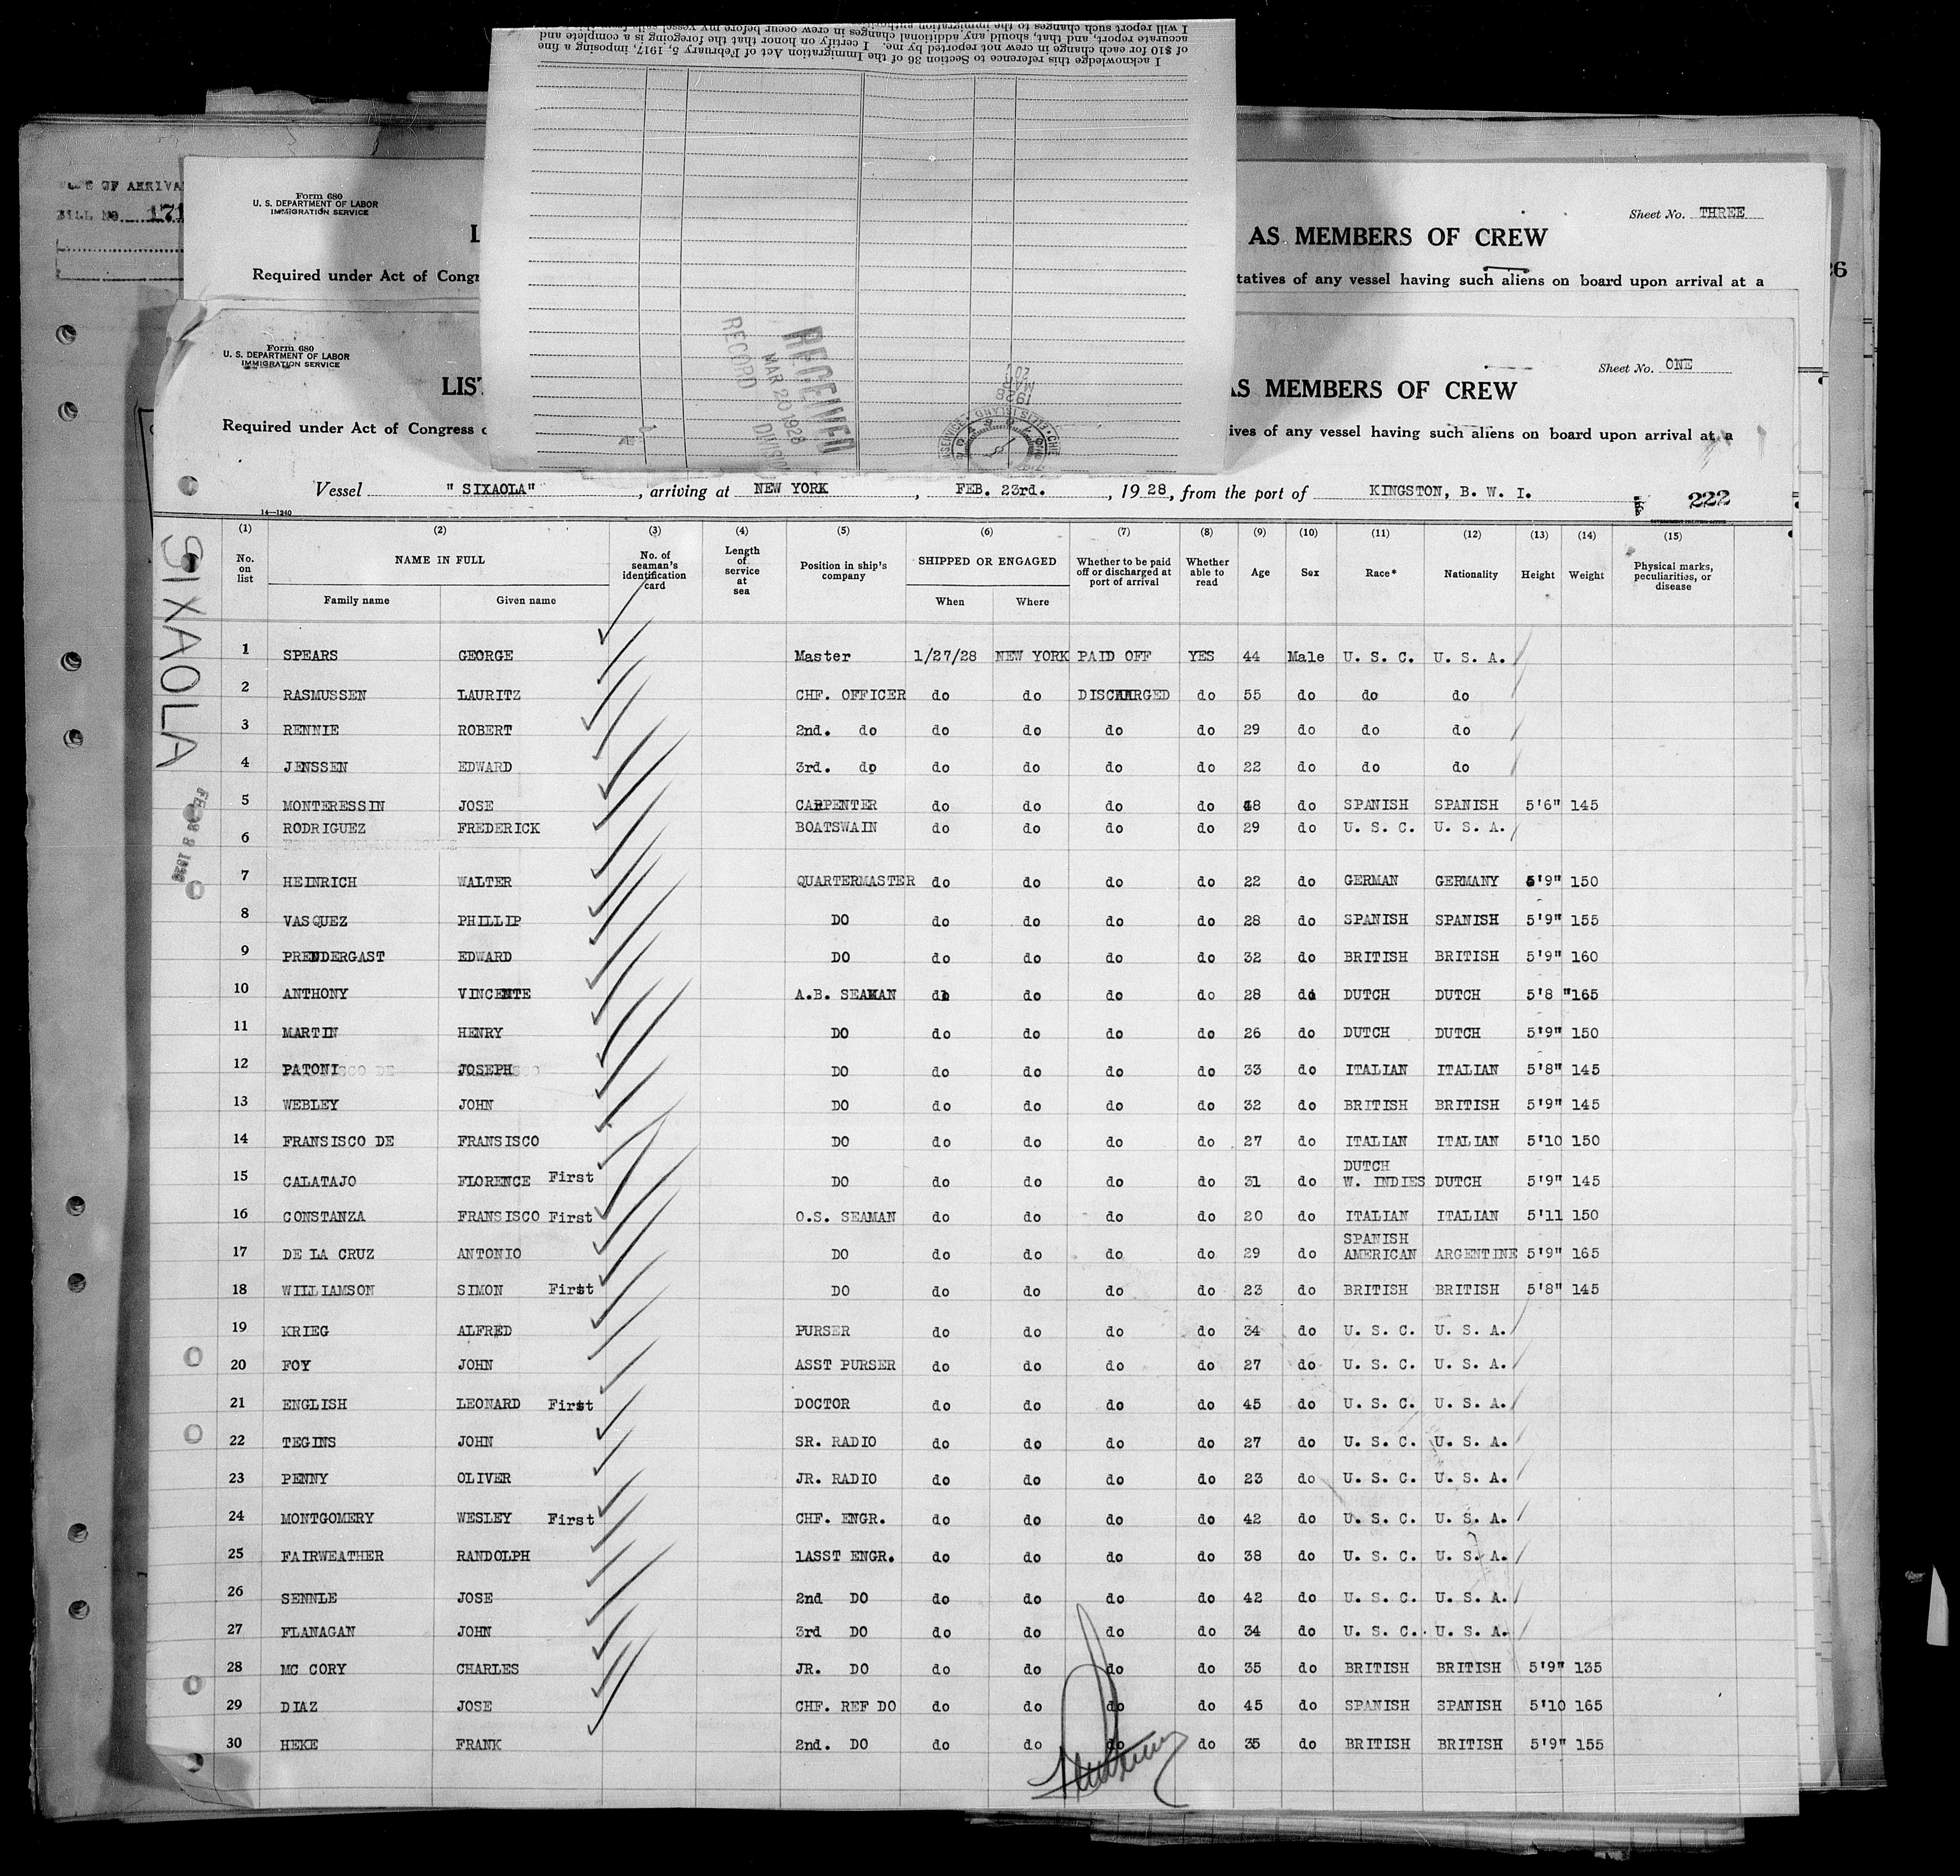 I acknowledge this reference to Section 36 of the Immigration Act of February 5, 1917, imposing a fine
of $10 for each change in crew not reported by me. I certify on honor that the foregoing is a complete and
accurate report, and that, should any additional changes in crew occur before my vessel
I will report such changes to the immigration
OF ARRIVA
BILL NO. 171
Form 680
U. S. DEPARTMENT OF LABOR
IMMIGRATION SERVICE
Sheet No. THREE
AS MEMBERS OF CREW
Required under Act of Congr
tatives of any vessel having such aliens on board upon arrival at a
26
RECEIVED
MAR 20 1928
RECORD DIVISION
1928
MAR
20
ELLIS ISLAND
Form 680
U. S. DEPARTMENT OF LABOR
IMMIGRATION SERVICE
Sheet No. ONE
LIST AS MEMBERS OF CREW
Required under Act of Congress ives of any vessel having such aliens on board upon arrival at a
Vessel "SIXAOLA", arriving at NEW YORK, FEB. 23rd., 1928, from the port of KINGSTON, B. W. I. 222
14—1240
SIXAOLA
(1) (2) (3) (4) (5) (6) (7) (8) (9) (10) (11) (12) (13) (14) (15)
No. on list NAME IN FULL No. of seaman's identification card Length of service at sea Position in ship's company SHIPPED OR ENGAGED Whether to be paid off or discharged at port of arrival Whether able to read Age Sex Race* Nationality Height Weight Physical marks, peculiarities, or disease
Family name Given name When Where
1 SPEARS GEORGE Master 1/27/28 NEW YORK PAID OFF YES 44 Male U. S. C. U. S. A.
2 RASMUSSEN LAURITZ CHF. OFFICER do do DISCHARGED do 55 do do do
3 RENNIE ROBERT 2nd. do do do do do 29 do do do
4 JENSSEN EDWARD 3rd. do do do do do 22 do do do
5 MONTERESSIN JOSE CARPENTER do do do do 48 do SPANISH SPANISH 5'6" 145
6 RODRIGUEZ FREDERICK BOATSWAIN do do do do 29 do U. S. C. U. S. A.
7 HEINRICH WALTER QUARTERMASTER do do do do 22 do GERMAN GERMANY 5'9" 150
8 VASQUEZ PHILLIP DO do do do do 28 do SPANISH SPANISH 5'9" 155
9 PRENDERGAST EDWARD DO do do do do 32 do BRITISH BRITISH 5'9" 160
10 ANTHONY VINCENTE A.B. SEAMAN do do do do 28 do DUTCH DUTCH 5'8 "165
11 MARTIN HENRY DO do do do do 26 do DUTCH DUTCH 5'9" 150
12 PATONI JOSEPH DO do do do do 33 do ITALIAN ITALIAN 5'8" 145
13 WEBLEY JOHN DO do do do do 32 do BRITISH BRITISH 5'9" 145
14 FRANSISCO DE FRANSISCO DO do do do do 27 do ITALIAN ITALIAN 5'10 150
15 CALATAJO FLORENCE First DO do do do do 31 do DUTCH W. INDIES DUTCH 5'9" 145
16 CONSTANZA FRANSISCO First O.S. SEAMAN do do do do 20 do ITALIAN ITALIAN 5'11 150
17 DE LA CRUZ ANTONIO DO do do do do 29 do SPANISH AMERICAN ARGENTINE 5'9" 165
18 WILLIAMSON SIMON First DO do do do do 23 do BRITISH BRITISH 5'8" 145
19 KRIEG ALFRED PURSER do do do do 34 do U. S. C. U. S. A.
20 FOY JOHN ASST PURSER do do do do 27 do U. S. C. U. S. A.
21 ENGLISH LEONARD First DOCTOR do do do do 45 do U. S. C. U. S. A.
22 TEGINS JOHN SR. RADIO do do do do 27 do U. S. C. U. S. A.
23 PENNY OLIVER JR. RADIO do do do do 23 do U. S. C. U. S. A.
24 MONTGOMERY WESLEY First CHF. ENGR. do do do do 42 do U. S. C. U. S. A.
25 FAIRWEATHER RANDOLPH 1ASST ENGR. do do do do 38 do U. S. C. U. S. A.
26 SENNLE JOSE 2nd DO do do do do 42 do U. S. C. U. S. A.
27 FLANAGAN JOHN 3rd DO do do do do 34 do U. S. C. U. S. A.
28 MC CORY CHARLES JR. DO do do do do 35 do BRITISH BRITISH 5'9" 135
29 DIAZ JOSE CHF. REF DO do do do do 45 do SPANISH SPANISH 5'10 165
30 HEKE FRANK 2nd. DO do do do do 35 do BRITISH BRITISH 5'9" 155